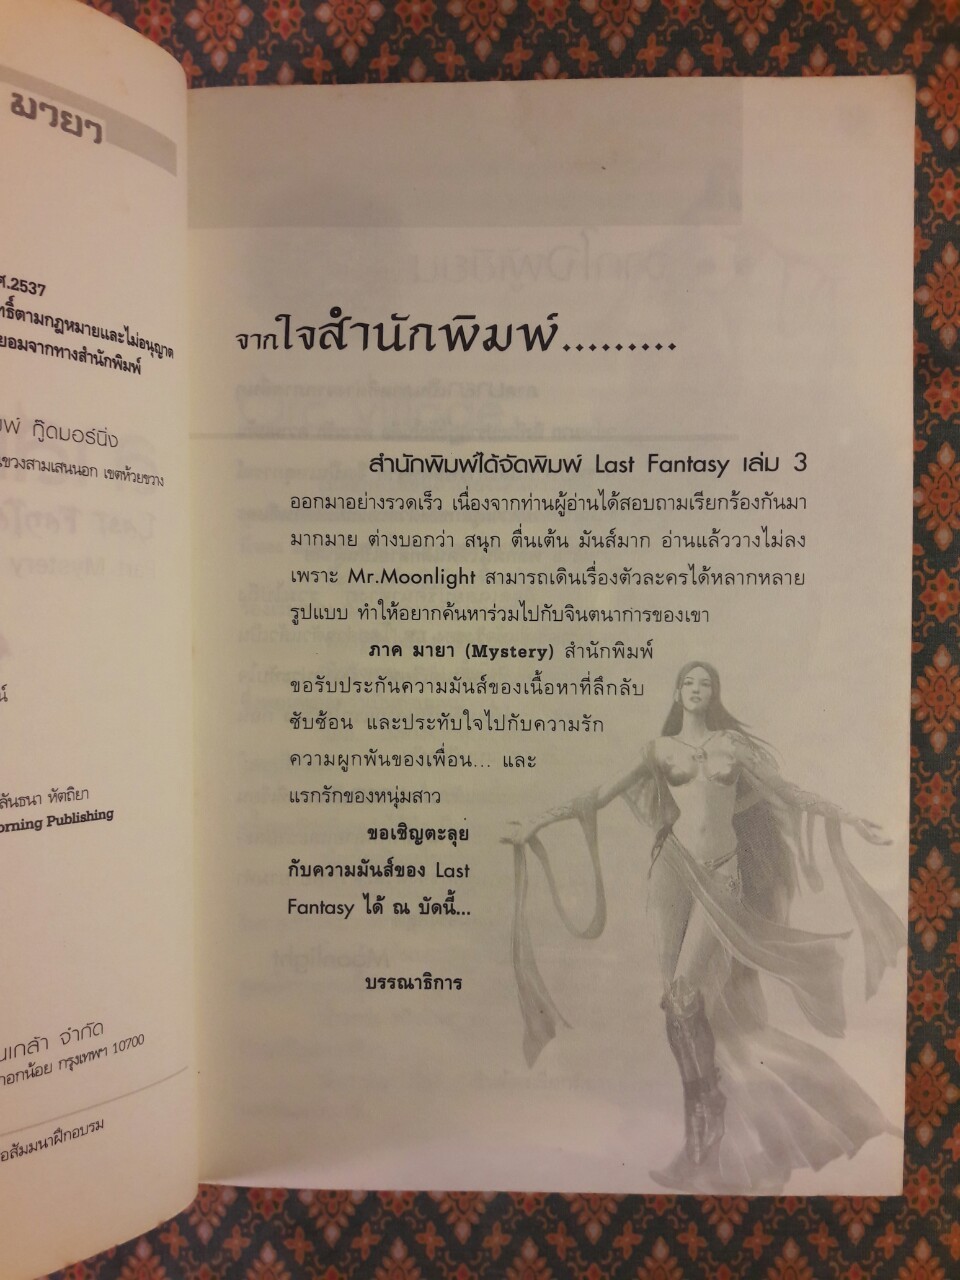 มายา
ศ.2537
ทธิ์ตามกฎหมายและไม่อนุญาต
ยอมจากทางสำนักพิมพ์
มพ์ กู๊ดมอร์นิ่ง
แขวงสามเสนนอก เขตห้วยขวาง
ลันธนา หัตถิยา
orning Publishing
นเกล้า จำกัด
กอกน้อย กรุงเทพฯ 10700
อสัมมนาฝึกอบรม
จากใจสำนักพิมพ์.........
สำนักพิมพ์ได้จัดพิมพ์ Last Fantasy เล่ม 3
ออกมาอย่างรวดเร็ว เนื่องจากท่านผู้อ่านได้สอบถามเรียกร้องกันมา
มากมาย ต่างบอกว่า สนุก ตื่นเต้น มันส์มาก อ่านแล้ววางไม่ลง
เพราะ Mr.Moonlight สามารถเดินเรื่องตัวละครได้หลากหลาย
รูปแบบ ทำให้อยากค้นหาร่วมไปกับจินตนาการของเขา
ภาค มายา (Mystery) สำนักพิมพ์
ขอรับประกันความมันส์ของเนื้อหาที่ลึกลับ
ซับซ้อน และประทับใจไปกับความรัก
ความผูกพันของเพื่อน... และ
แรกรักของหนุ่มสาว
ขอเชิญตะลุย
กับความมันส์ของ Last
Fantasy ได้ ณ บัดนี้...
บรรณาธิการ